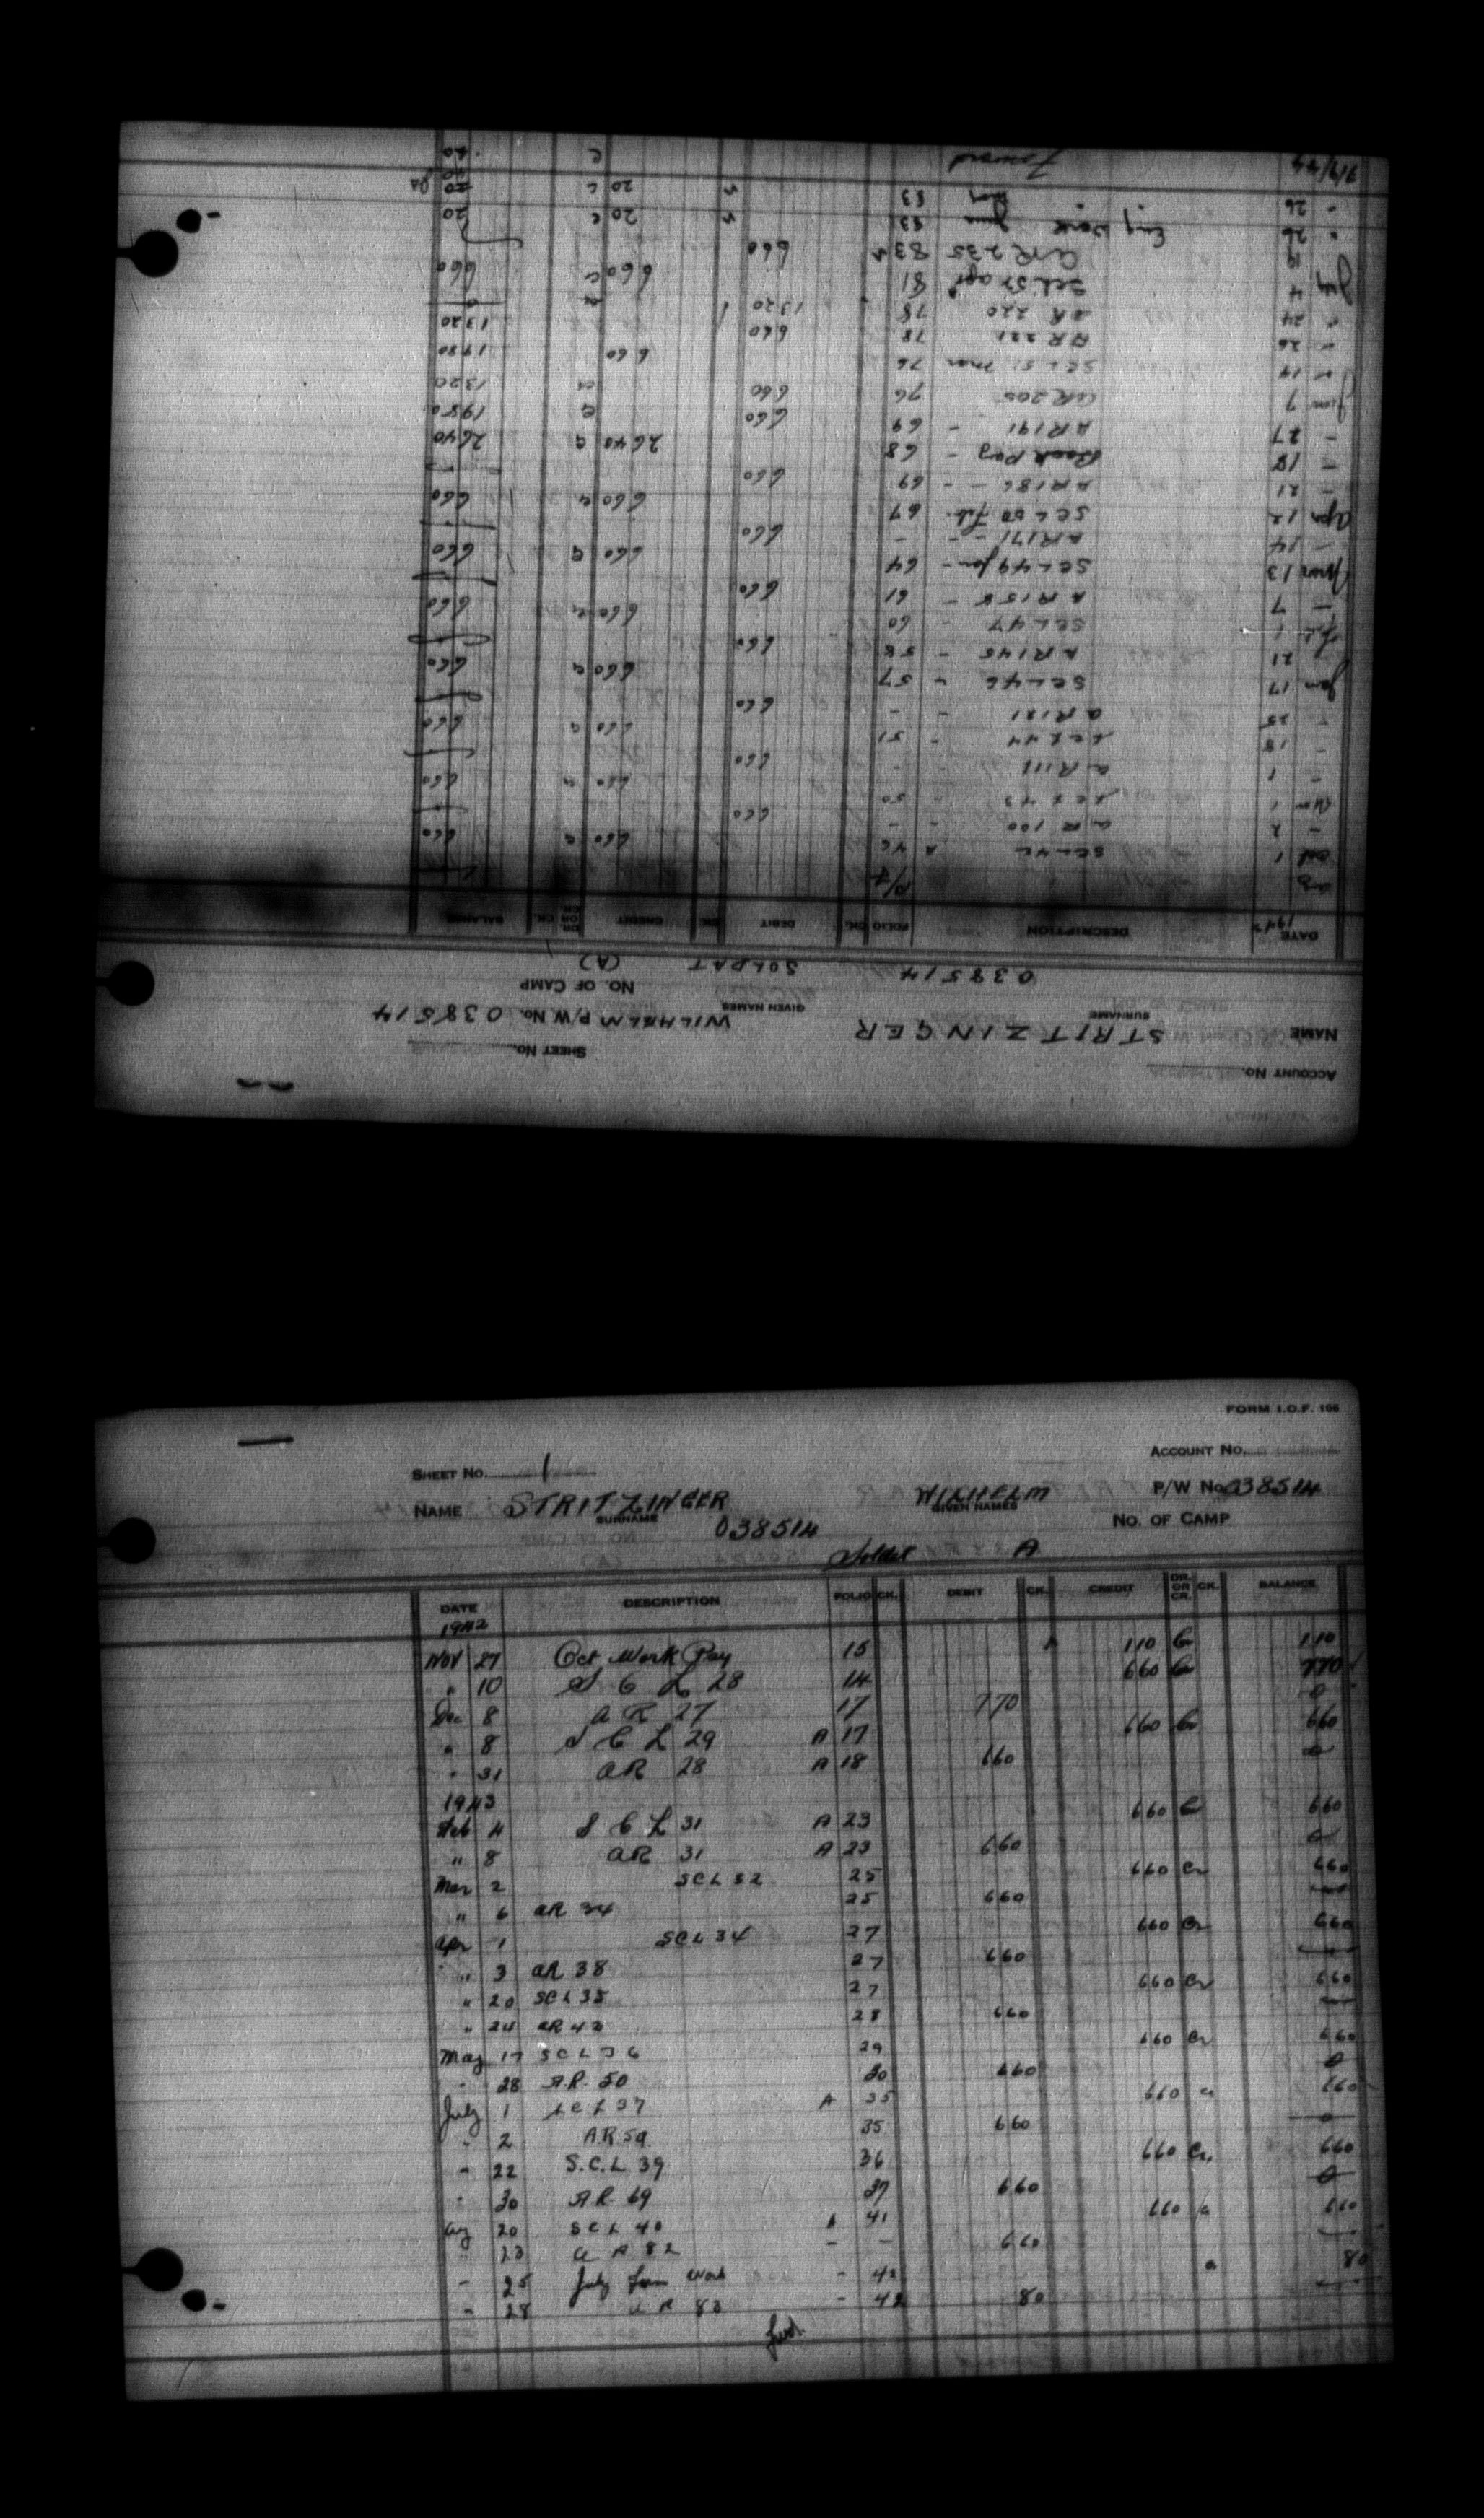 FORM I.O.F. 106
ACCOUNT No.
SHEET No. 1
NAME STRITZINGER WILHELM P/W No. 038514
SURNAME GIVEN NAMES
038514 NO. OF CAMP
Soldat A
DATE DESCRIPTION FOLIO CK. DEBIT CK. CREDIT DR. OR CR. CK. BALANCE
1942
Nov 27 Oct Work Pay 15 110 Cr 110
" 10 S C L 28 14 660 Cr 770
Dec 8 a R 27 17 770 0
" 8 S C L 29 A 17 660 Cr 660
" 31 aR 28 A 18 660 0
1943
Feb 4 S C L 31 A 23 660 Cr 660
" 8 aR 31 A 23 660 0
Mar 2 SCL 32 25 660 Cr 660
" 6 aR 34 25 660
Apr 1 SCL 34 27 660 Cr 660
" 3 aR 38 27 660
" 20 SCL 35 27 660 Cr 660
" 24 aR 43 28 660
May 17 SCL 36 29 660 Cr 660
" 28 A.R. 50 30 660 0
July 1 SCL 37 A 35 660 Cr 660
" 2 A.R. 59 35 660 0
" 22 S.C.L 39 36 660 Cr. 660
" 30 A.R. 69 37 660 0
Aug 20 SCL 40 41 660 Cr 660
" 23 a R 82 - - 660
- 25 July Farm Work - 42 80
- 28 a R 83 - 42 80
fwd.
ACCOUNT No. SHEET No.
NAME STRITZINGER WILHELM P/W No. 038514
SURNAME GIVEN NAMES
NO. OF CAMP
038514 SOLDAT (A)
DATE DESCRIPTION FOLIO CK. DEBIT CK. CREDIT DR. OR CR. CK. BALANCE
1943
Aug B/F
Oct 1 SCL 42 A 46 660 Cr 660
- 2 a R 100 - - 660
Nov 1 SCL 43 - 50 660 Cr 660
- 1 a R 111 - - 660
- 18 SCL 44 - 51 660 Cr 660
- 25 a R 121 - - 660
Jan 17 SCL 46 - 57 660 Cr 660
21 A R 145 - 58 660
Feb 1 SCL 47 - 60 660 Cr 660
- 7 A R 158 - 61 660
Mar 13 SCL 49 Jan - 64 660 Cr 660
- 14 A R 171 - - - 660
Apr 12 SCL 50 Feb. 67 660 Cr 660
- 21 A R 186 - - 69 660
- 18 Back Pay - 68 2640 Cr 2640
- 27 A R 191 - 69 660 Cr 1980
June 7 a R 205 76 660 Cr 1320
" 14 SCL 51 Mar 76 660 1980
" 26 A R 221 78 660 1320
" 24 A R 220 78 1320
July 4 SCL 52 Apr 81 660 Cr 660
19 a R 235 83 660
" 26 Eng Work June 83 20 Cr 20
" 26 " " May 83 20 Cr
Forward Cr 40